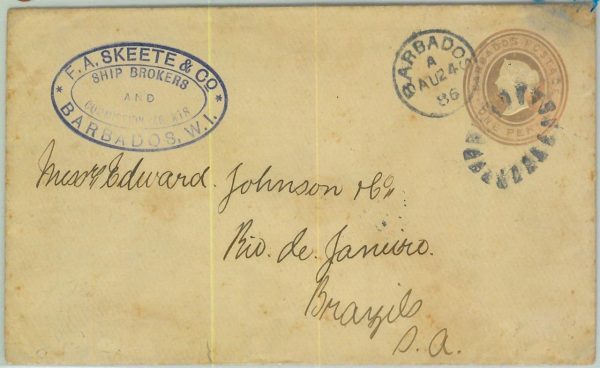 F. A. SKEETE & Co
SHIP BROKERS
AND
BARBADOS, W.I.
BARBADOS
A
AU 24
86
BARBADOS POSTAGE
ONE PENNY
Messrs Edward Johnson & Co
Rio de Janeiro.
Brazils
S.A.